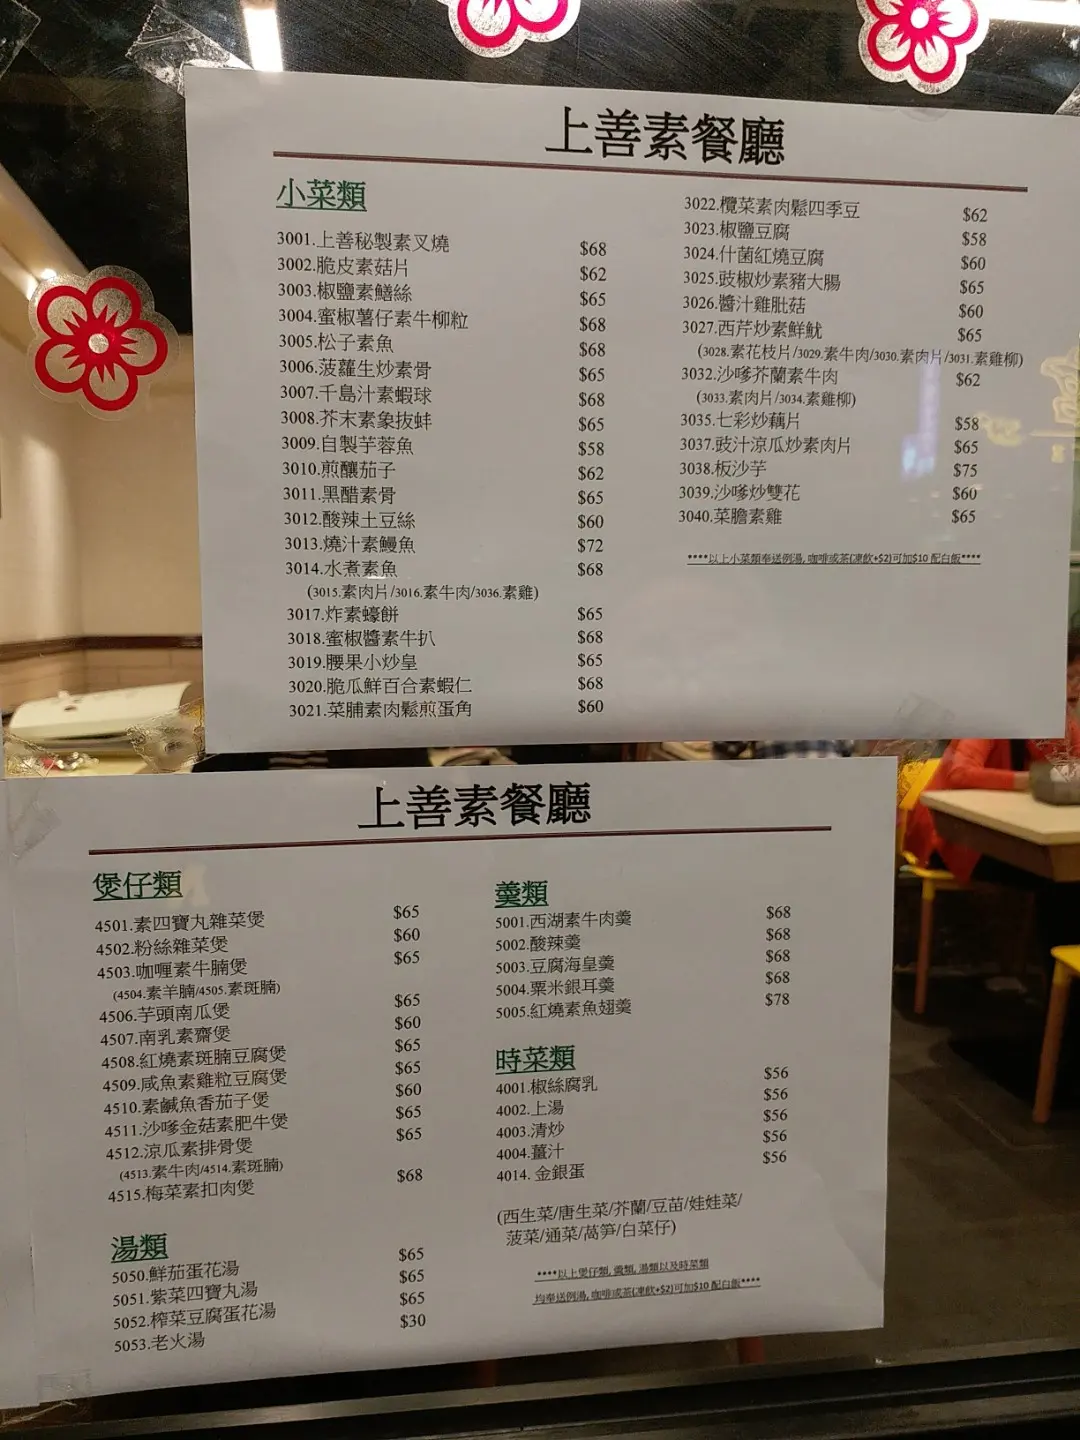 上善素餐廳
小菜類
3001.上善秘製素叉燒 $68
3002.脆皮素菇片 $62
3003.椒鹽素鱔絲 $65
3004.蜜椒薯仔素牛柳粒 $68
3005.松子素魚 $68
3006.菠蘿生炒素骨 $65
3007.千島汁素蝦球 $68
3008.芥末素象拔蚌 $65
3009.自製芋蓉魚 $58
3010.煎釀茄子 $62
3011.黑醋素骨 $65
3012.酸辣土豆絲 $60
3013.燒汁素鰻魚 $72
3014.水煮素魚 $68
(3015.素肉片/3016.素牛肉/3036.素雞)
3017.炸素蠔餅 $65
3018.蜜椒醬素牛扒 $68
3019.腰果小炒皇 $65
3020.脆瓜鮮百合素蝦仁 $68
3021.菜脯素肉鬆煎蛋角 $60
3022.欖菜素肉鬆四季豆 $62
3023.椒鹽豆腐 $58
3024.什菌紅燒豆腐 $60
3025.豉椒炒素豬大腸 $65
3026.醬汁雞肶菇 $60
3027.西芹炒素鮮魷 $65
(3028.素花枝片/3029.素牛肉/3030.素肉片/3031.素雞柳)
3032.沙嗲芥蘭素牛肉 $62
(3033.素肉片/3034.素雞柳)
3035.七彩炒藕片 $58
3037.豉汁涼瓜炒素肉片 $65
3038.板沙芋 $75
3039.沙嗲炒雙花 $60
3040.菜膽素雞 $65
****以上小菜類奉送例湯, 咖啡或茶(凍飲+$2)可加$10 配白飯****
上善素餐廳
煲仔類
4501.素四寶丸雜菜煲 $65
4502.粉絲雜菜煲 $60
4503.咖喱素牛腩煲 $65
(4504.素羊腩/4505.素斑腩)
4506.芋頭南瓜煲 $65
4507.南乳素齋煲 $60
4508.紅燒素斑腩豆腐煲 $65
4509.咸魚素雞粒豆腐煲 $65
4510.素鹹魚香茄子煲 $60
4511.沙嗲金菇素肥牛煲 $65
4512.涼瓜素排骨煲 $65
(4513.素牛肉/4514.素斑腩)
4515.梅菜素扣肉煲 $68
湯類
5050.鮮茄蛋花湯 $65
5051.紫菜四寶丸湯 $65
5052.榨菜豆腐蛋花湯 $65
5053.老火湯 $30
羹類
5001.西湖素牛肉羹 $68
5002.酸辣羹 $68
5003.豆腐海皇羹 $68
5004.粟米銀耳羹 $68
5005.紅燒素魚翅羹 $78
時菜類
4001.椒絲腐乳 $56
4002.上湯 $56
4003.清炒 $56
4004.薑汁 $56
4014. 金銀蛋 $56
(西生菜/唐生菜/芥蘭/豆苗/娃娃菜/
菠菜/通菜/萵笋/白菜仔)
****以上煲仔類, 羹類, 湯類以及時菜類
均奉送例湯, 咖啡或茶(凍飲+$2)可加$10 配白飯****